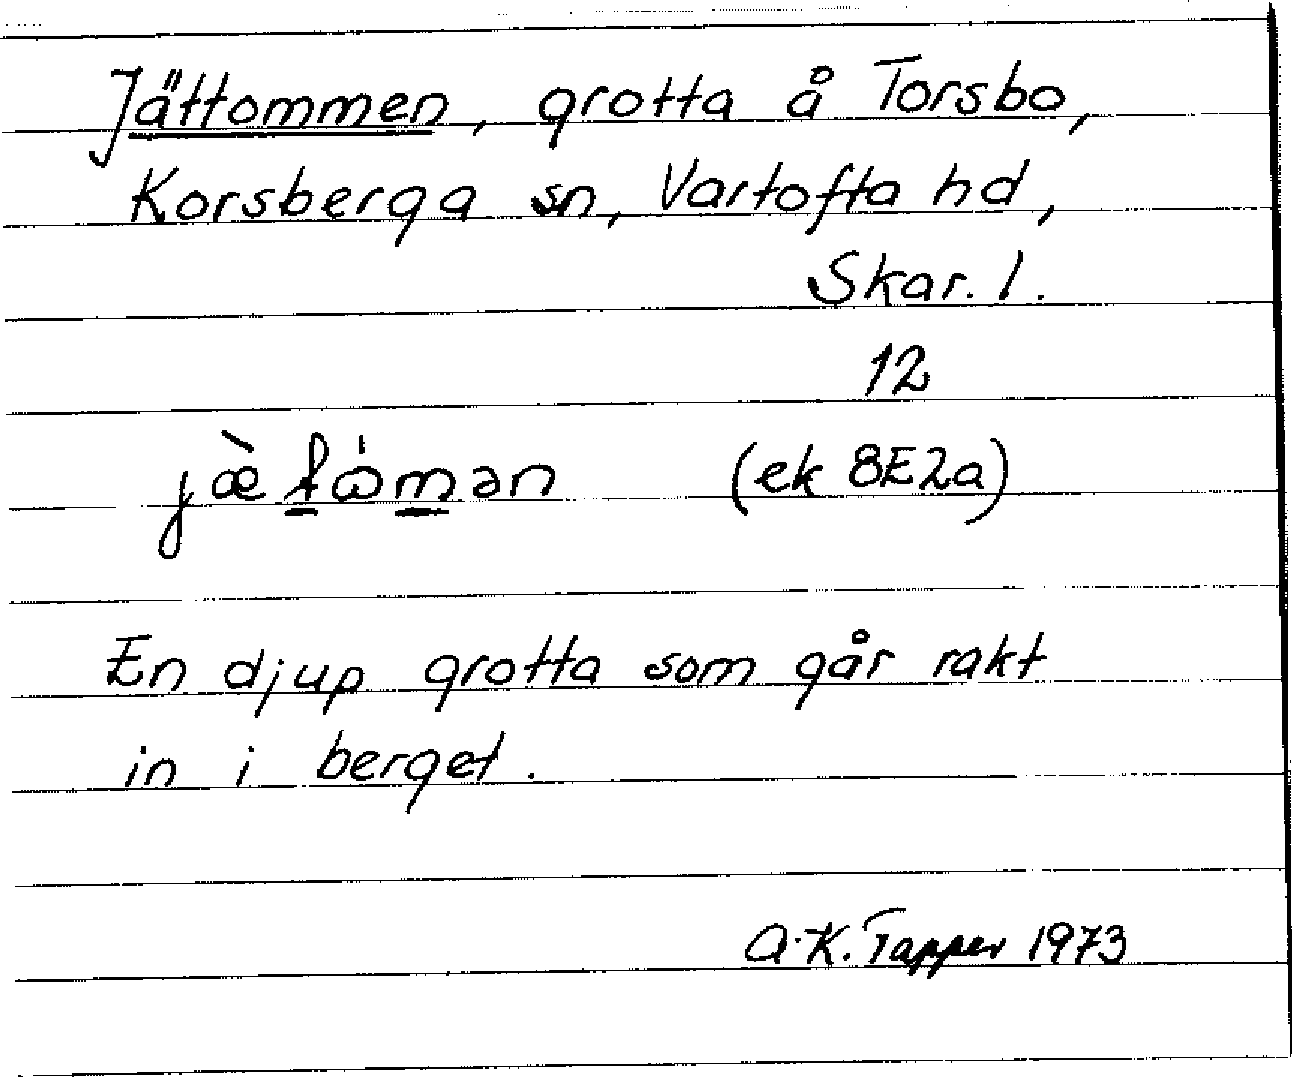 Jättommen, grotta å Torsbo,
Korsberga sn, Vartofta hd,
Skar. l.
12
(ek 8E2a)
En djup grotta som går rakt
in i berget.
A.K. Tapper 1973